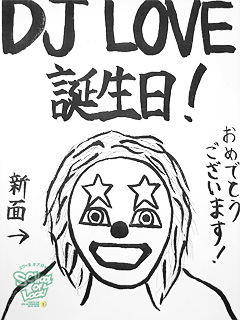 DJ LOVE
誕生日!
おめでとう
ございます!
新面→
SCHOOL
OF
LOCK!